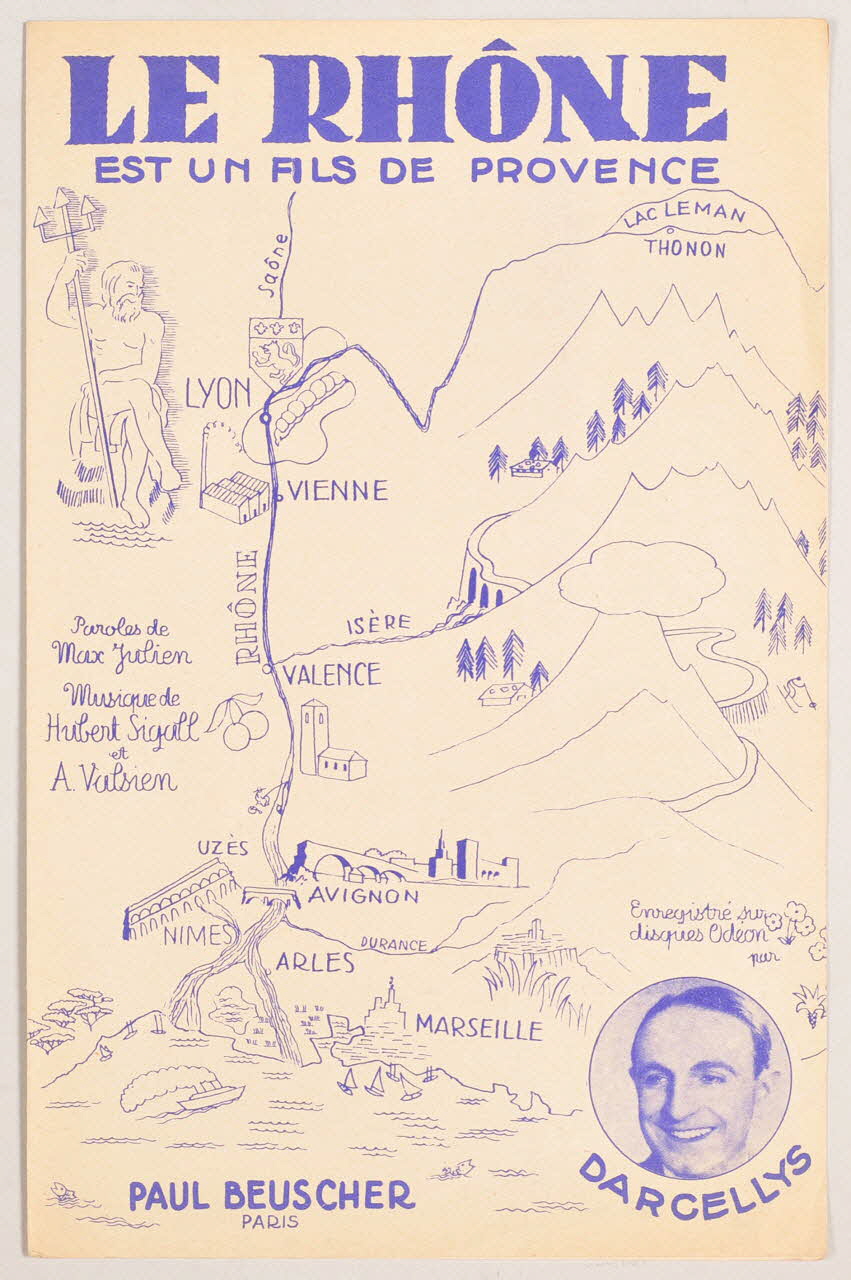 LE RHÔNE
EST UN FILS DE PROVENCE
LAC LEMAN
THONON
Saône
LYON
VIENNE
RHÔNE
ISÈRE
VALENCE
Paroles de
Max Julien
Musique de
Hubert Sigall
et
A. Valsien
UZÈS
AVIGNON
NIMES
DURANCE
ARLES
MARSEILLE
Enregistré sur
disques Odéon
par
DARCELLYS
PAUL BEUSCHER
PARIS